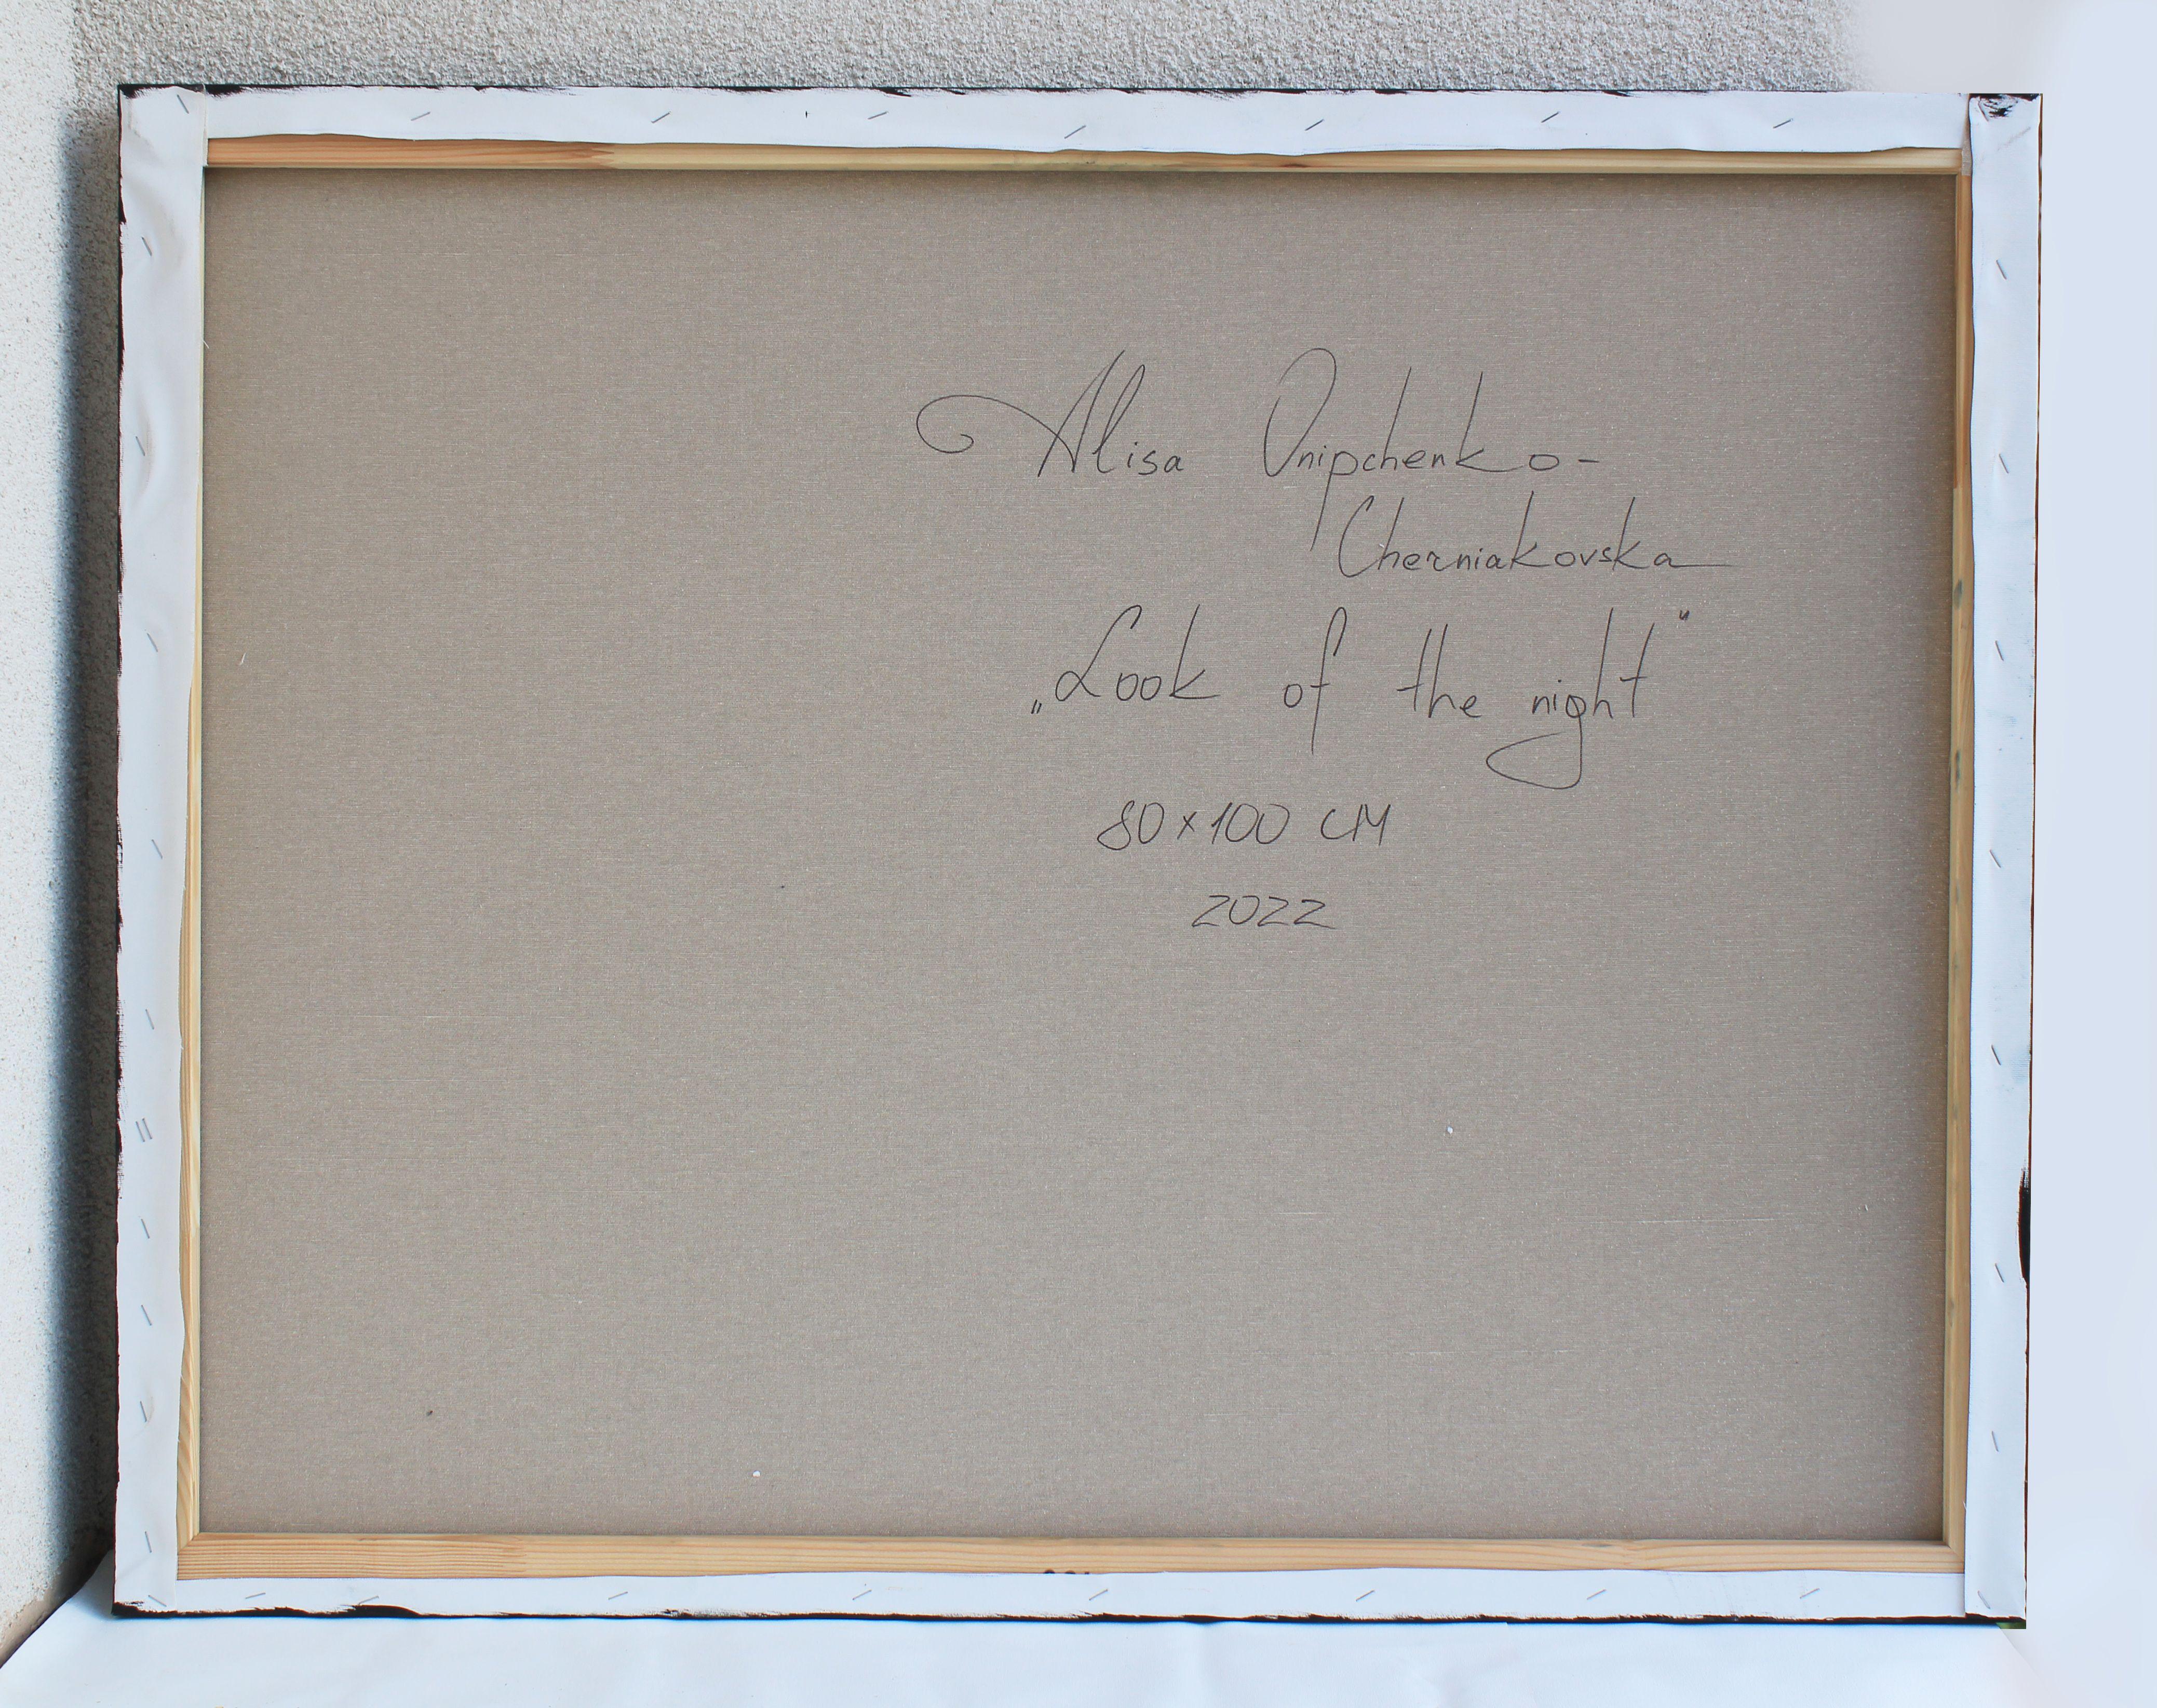 Alisa Onipchenko-
Cherniakovska
„Look of the night"
80×100 CM
2022